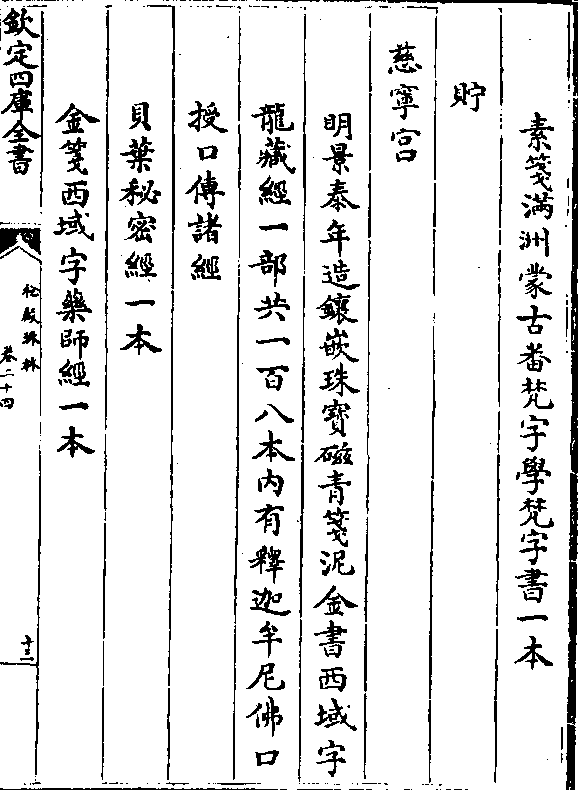 素箋滿洲蒙古番梵字學梵字書一本
貯
慈寧宮
明景泰年造鑲嵌珠寶磁青箋泥金書西域字
龍藏經一部共一百八本内有釋迦牟尼佛口
授口傳諸經
貝葉秘密經一本
金箋西域字藥師經一本
欽定四庫全書
秘殿珠林
卷二十四
十三